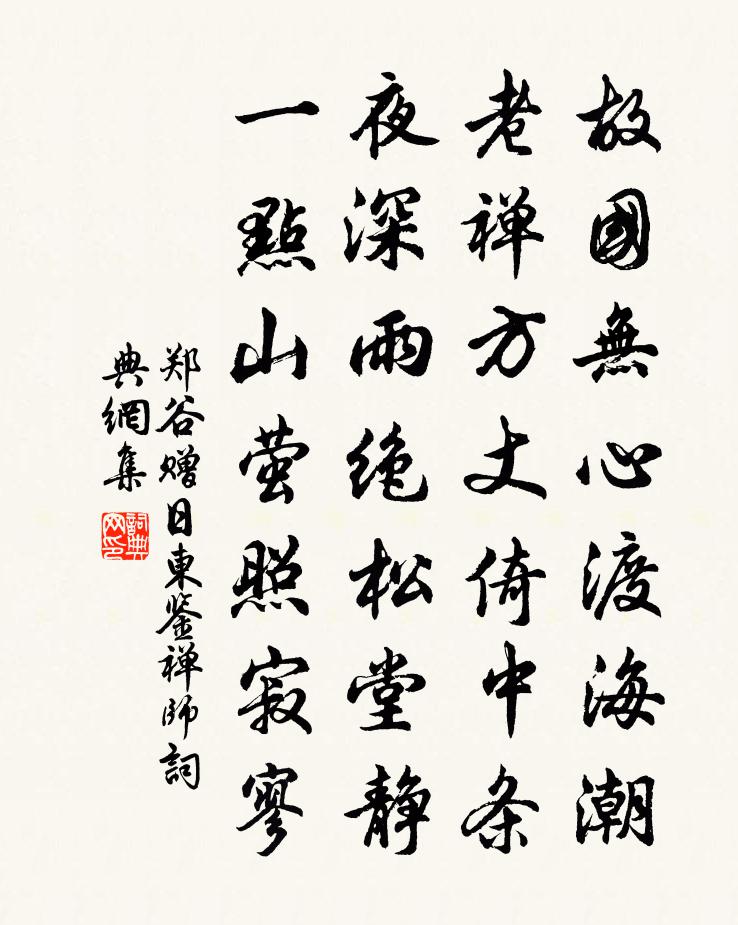 故國無心渡海潮
老禅方丈倚中条
夜深雨绝松堂静
一點山萤照寂寥
郑谷赠日東鉴禅師詞
典網集
詞典网印